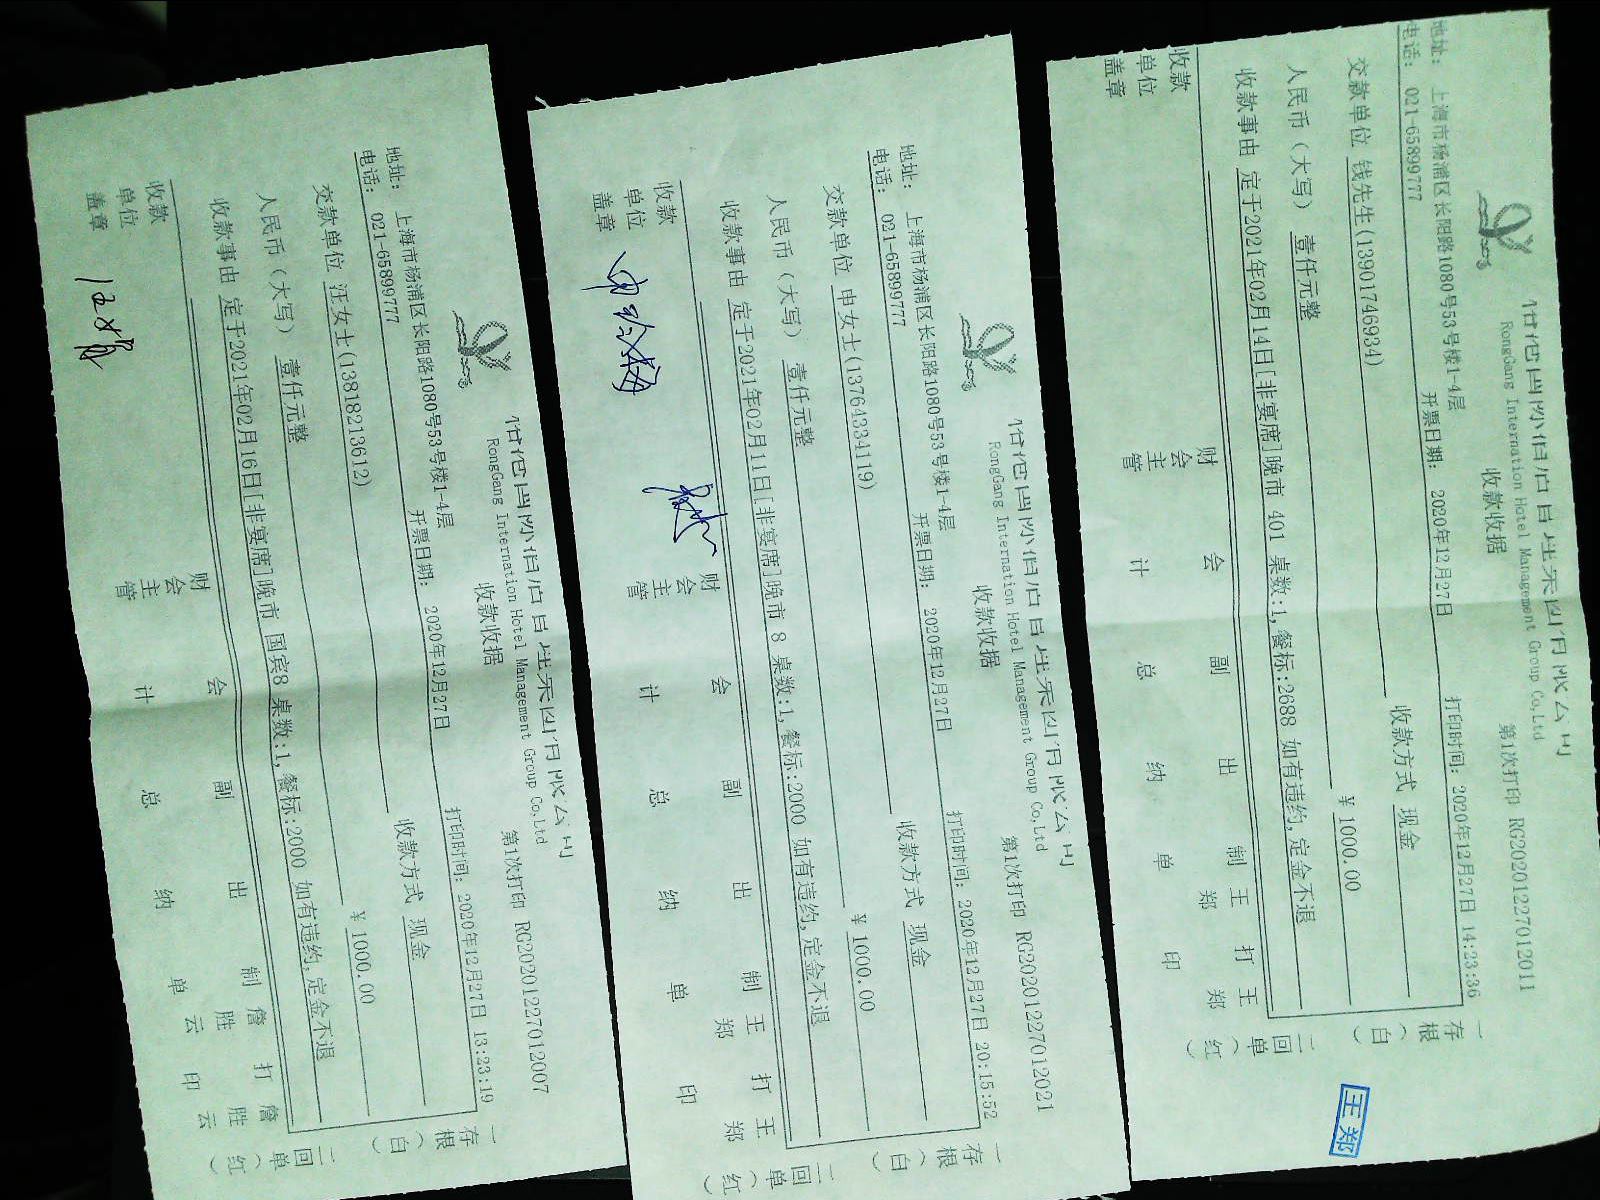 RongGang Internation Hotel Management Group Co,Ltd
收款收据
第1次打印 RG20201227012007
地址： 上海市杨浦区长阳路1080号53号楼1-4层
电话： 021-65899777
开票日期： 2020年12月27日
打印时间： 2020年12月27日 13:23:19
交款单位 汪女士(13818213612)
收款方式 现金
人民币（大写） 壹仟元整
￥ 1000.00
收款事由 定于2021年02月16日[非宴席]晚市 国宾8 桌数:1,餐标:2000 如有违约,定金不退
收款单位盖章
财会主管
会计
副总
出纳
制单 詹胜云
打印 詹胜云
一存根（白）
二回单（红）
RongGang Internation Hotel Management Group Co,Ltd
收款收据
第1次打印 RG20201227012021
地址： 上海市杨浦区长阳路1080号53号楼1-4层
电话： 021-65899777
开票日期： 2020年12月27日
打印时间： 2020年12月27日 20:15:52
交款单位 申女士(13764334119)
收款方式 现金
人民币（大写） 壹仟元整
￥ 1000.00
收款事由 定于2021年02月11日[非宴席]晚市 8 桌数:1,餐标:2000 如有违约,定金不退
收款单位盖章
财会主管
会计
副总
出纳
制单 王郑
打印 王郑
一存根（白）
二回单（红）
RongGang Internation Hotel Management Group Co,Ltd
收款收据
第1次打印 RG20201227012011
地址： 上海市杨浦区长阳路1080号53号楼1-4层
电话： 021-65899777
开票日期： 2020年12月27日
打印时间： 2020年12月27日 14:23:36
交款单位 钱先生(13901746934)
收款方式 现金
人民币（大写） 壹仟元整
￥ 1000.00
收款事由 定于2021年02月14日[非宴席]晚市 401 桌数:1,餐标:2688 如有违约,定金不退
收款单位盖章
财会主管
会计
副总
出纳
制单 王郑
打印 王郑
一存根（白）
二回单（红）
王郑